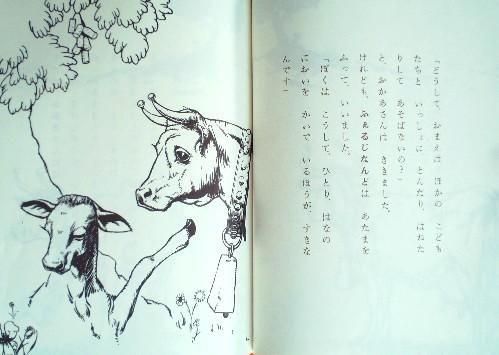 「どうして、おまえは ほかの こども
たちと いっしょに とんだり、はねた
りして あそばないの？」
と、おかあさんは ききました。
けれども、ふぇるじなんどは あたまを
ふって、いいました。
「ぼくは こうして、ひとり、はなの
においを かいで いるほうが、すきな
んです」